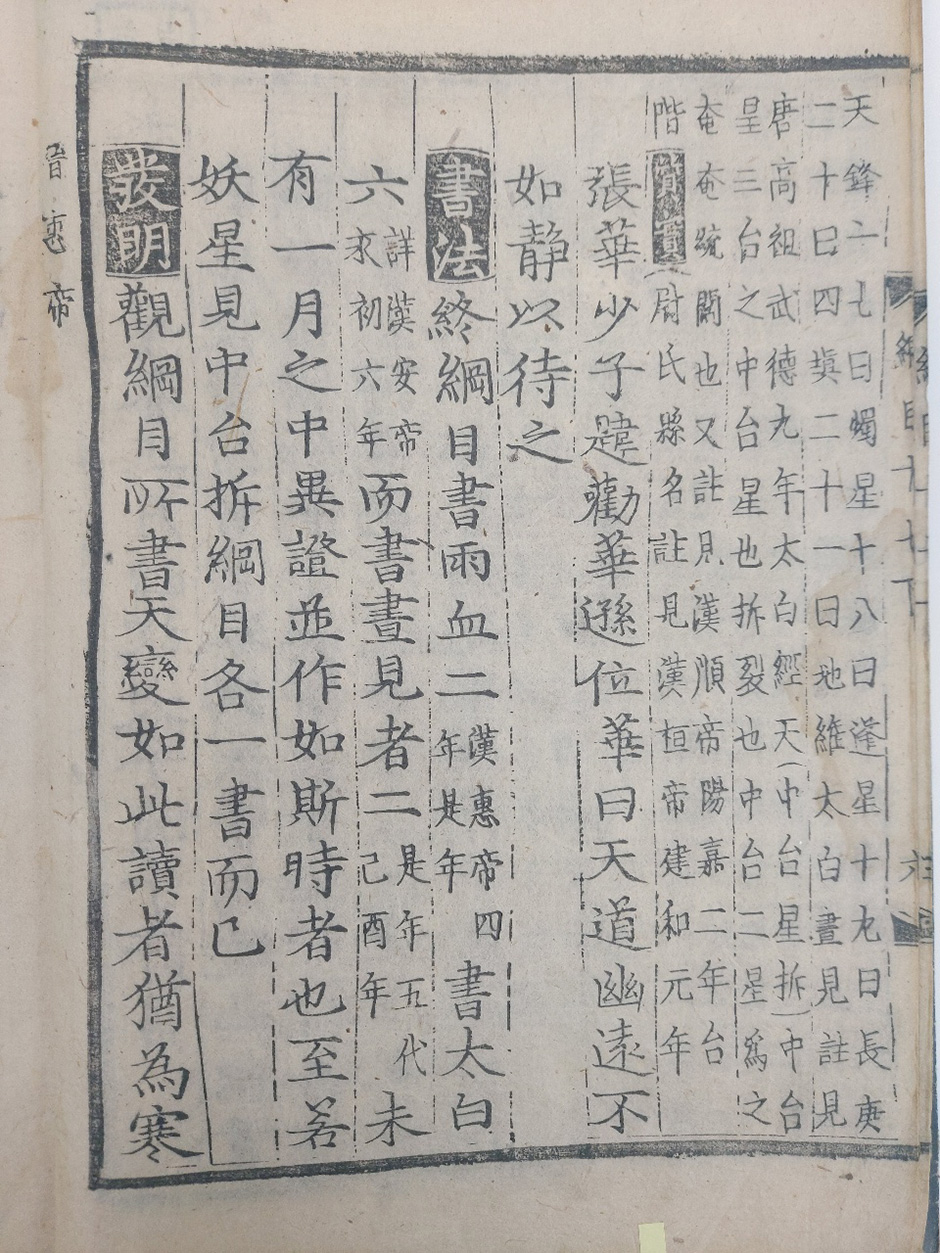 天鋒二七曰燭星十八曰蓬星十九曰長庚
二十曰四塡二十一曰地維太白晝見註見
唐高祖武德九年太白經天(中台星拆)中台
星三台之中台星也拆裂也中台二星爲之
奄奄統閣也又註見漢順帝陽嘉二年台
階
質實(尉氏縣名註見漢桓帝建和元年
張華少子韙勸華遜位華曰天道幽遠不
如靜以待之
書法終綱目書雨血二漢惠帝四年是年書太白
六詳漢安帝永初六年而書晝見者二是年五代己酉年未
有一月之中異證並作如斯時者也至若
妖星見中台拆綱目各一書而已
發明觀綱目所書天變如此讀者猶為寒
晉惠帝
綱目十七下
六